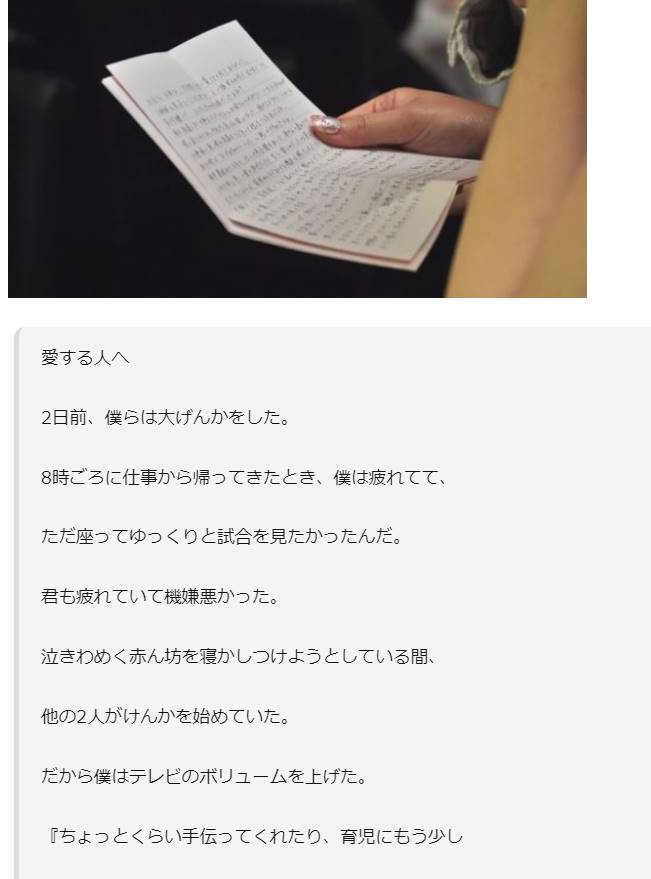 愛する人へ
2日前、僕らは大げんかをした。
8時ごろに仕事から帰ってきたとき、僕は疲れてて、
ただ座ってゆっくりと試合を見たかったんだ。
君も疲れていて機嫌悪かった。
泣きわめく赤ん坊を寝かしつけようとしている間、
他の2人がけんかを始めていた。
だから僕はテレビのボリュームを上げた。
『ちょっとくらい手伝ってくれたり、育児にもう少し